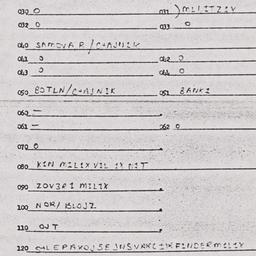 030 0 031 ) MILITZIV
032 0 033 0
040 SAMOVAR/CHAJNIK
041 0 042 0
043 0 044 0
050 BOTLN/CHAJNIK 051 BANKI
060 —
061 — 062 0
070 0
080 KIN MILIX VIL IX NIT
090 ZOVER I MILIX
100 NOR/BLOJZ
110 OJ T
120